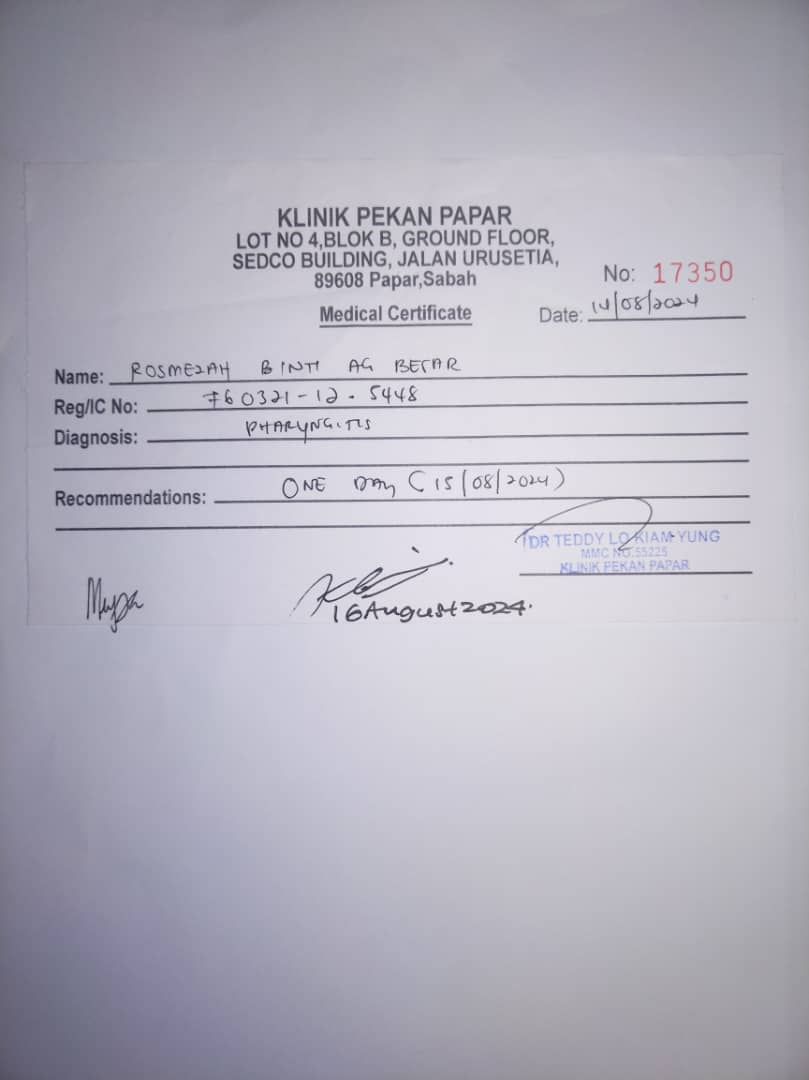 KLINIK PEKAN PAPAR
LOT NO 4,BLOK B, GROUND FLOOR,
SEDCO BUILDING, JALAN URUSETIA,
89608 Papar,Sabah
No: 17350
Medical Certificate
Date: 14/08/2024
Name: ROSMEZAH BINTI AG BEFAR
Reg/IC No: 760321-12-5448
Diagnosis: PHARYNGITIS
Recommendations: ONE DAY (15/08/2024)
DR TEDDY LO KIAM YUNG
MMC NO.55225
KLINIK PEKAN PAPAR
16 August 2024.